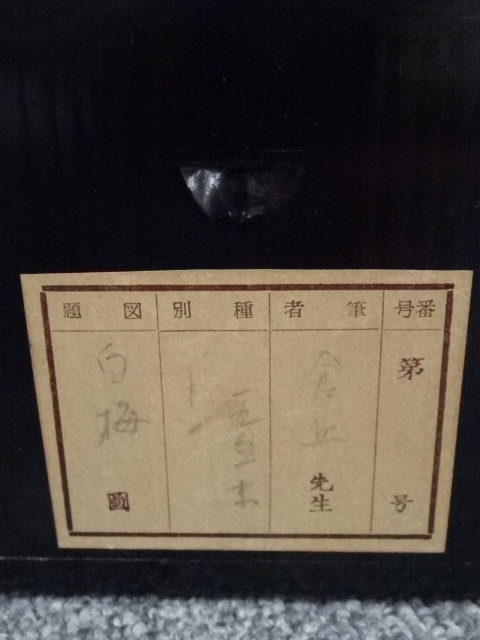 番号
第
号
筆者
倉丘
先生
種別
図題
白梅
圖